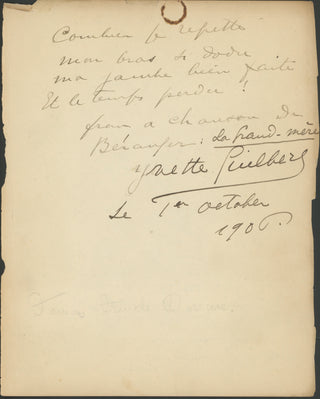 Combien je regrette
mon bras si dodu
ma jambe bien faite
Et le temps perdu !
from a chanson de
Béranger : la Grand-mère
Yvette Guilbert
le 1er October
190